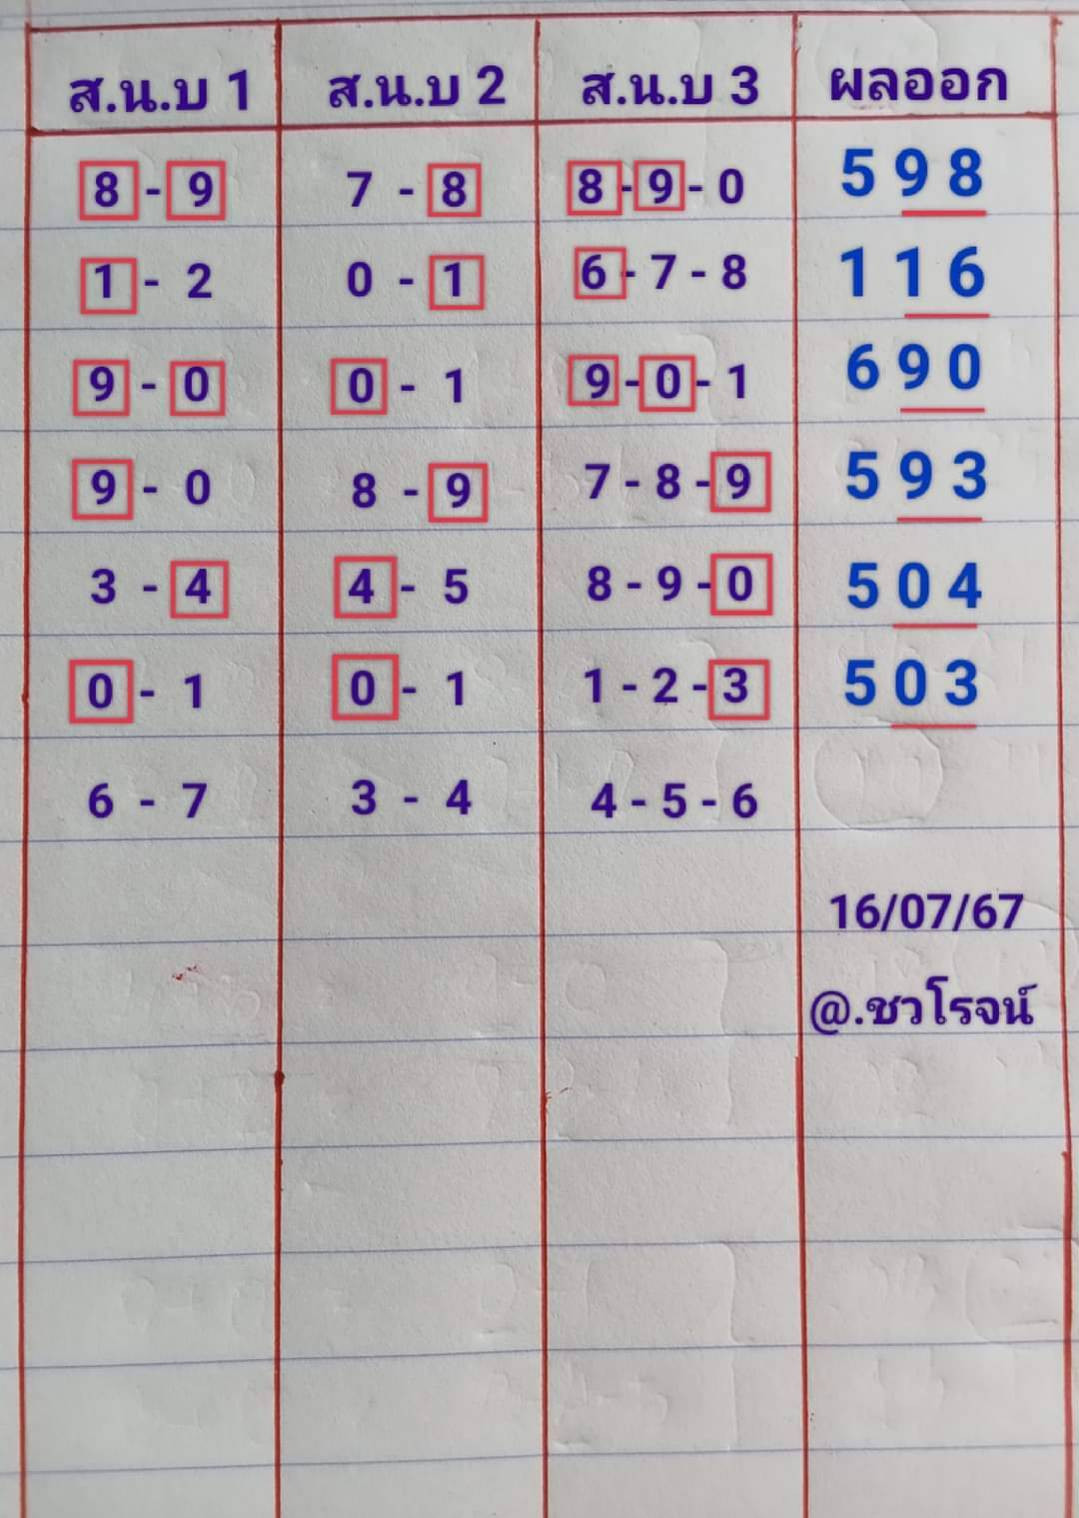 ส.น.บ 1 ส.น.บ 2 ส.น.บ 3 ผลออก
8 - 9 7 - 8 8 - 9 - 0 5 9 8
1 - 2 0 - 1 6 - 7 - 8 1 1 6
9 - 0 0 - 1 9 - 0 - 1 6 9 0
9 - 0 8 - 9 7 - 8 - 9 5 9 3
3 - 4 4 - 5 8 - 9 - 0 5 0 4
0 - 1 0 - 1 1 - 2 - 3 5 0 3
6 - 7 3 - 4 4 - 5 - 6
16/07/67
@.ชวโรจน์